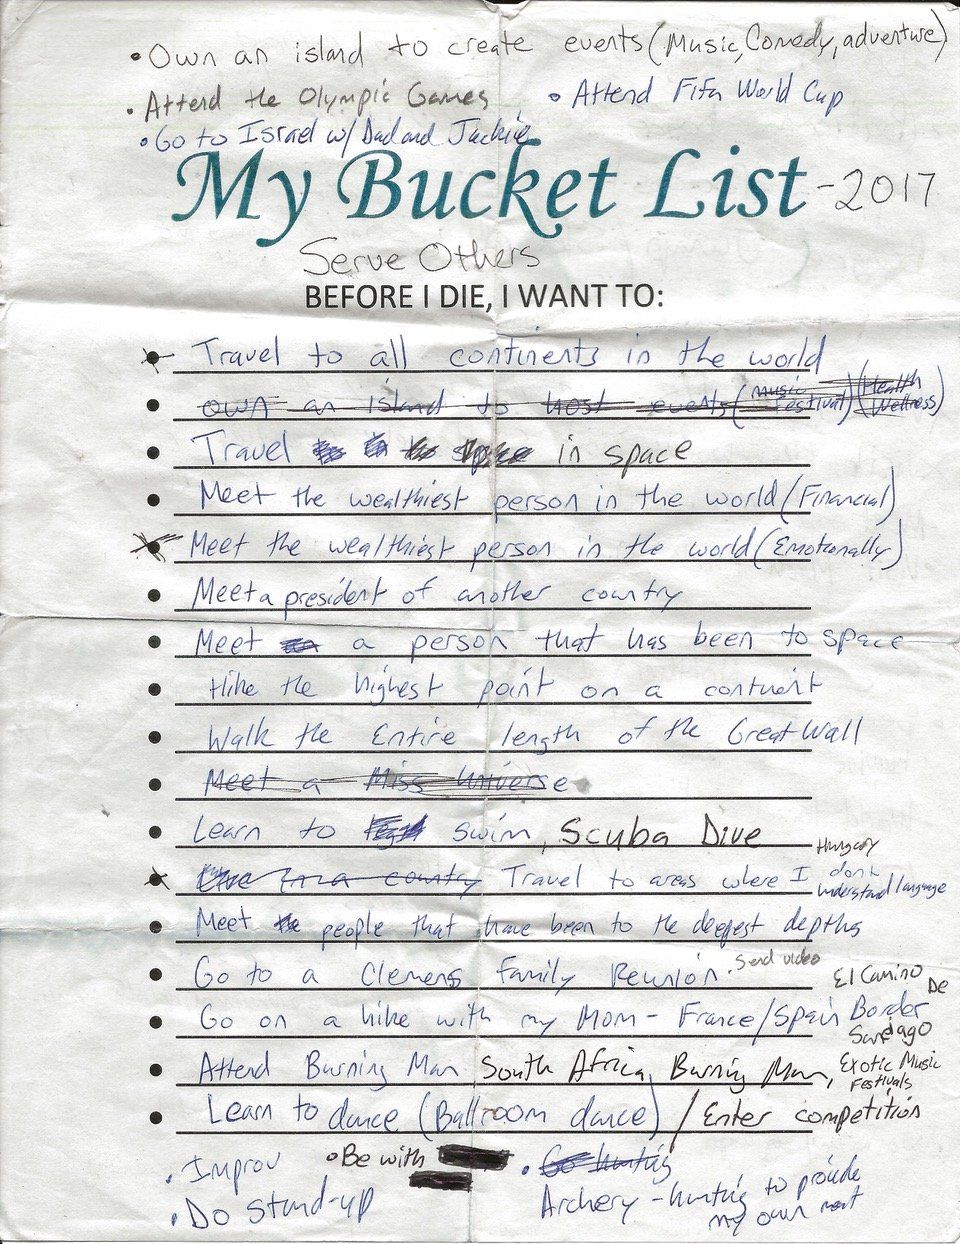 • Own an island to create events (Music, Comedy, adventure)
• Attend the Olympic Games • Attend Fifa World Cup
• Go to Israel w/ Dad and Jackie
My Bucket List - 2017
Serve Others
BEFORE I DIE, I WANT TO:
• Travel to all continents in the world
• own an island to host events (music Festival) (Health Wellness)
• Travel in space
• Meet the wealthiest person in the world (Financial)
• Meet the wealthiest person in the world (Emotionally)
• Meet a president of another country
• Meet a person that has been to space
• Hike the highest point on a continent
• Walk the Entire length of the Great Wall
• Meet a Miss Universe
• Learn to swim, Scuba Dive
• Live in a country Travel to areas where I don't understand language Hungary
• Meet people that have been to the deepest depths
• Go to a Clemens Family Reunion. Send video
• Go on a hike with my Mom - France/Spain Border El Camino De Santiago
• Attend Burning Man South Africa Burning Man, Exotic Music Festivals
• Learn to dance (Ballroom dance) / Enter competition
• Improv • Be with • Go hunting
• Do stand-up Archery - hunting to provide
my own meat